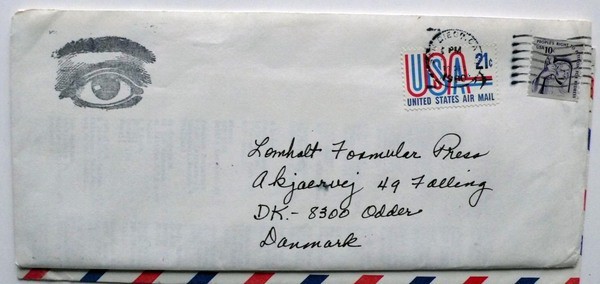 USA 21c
UNITED STATES AIR MAIL
10c
PM
Lomholt Formular Press
Akjaervej 49 Falling
DK.- 8300 Odder
Danmark